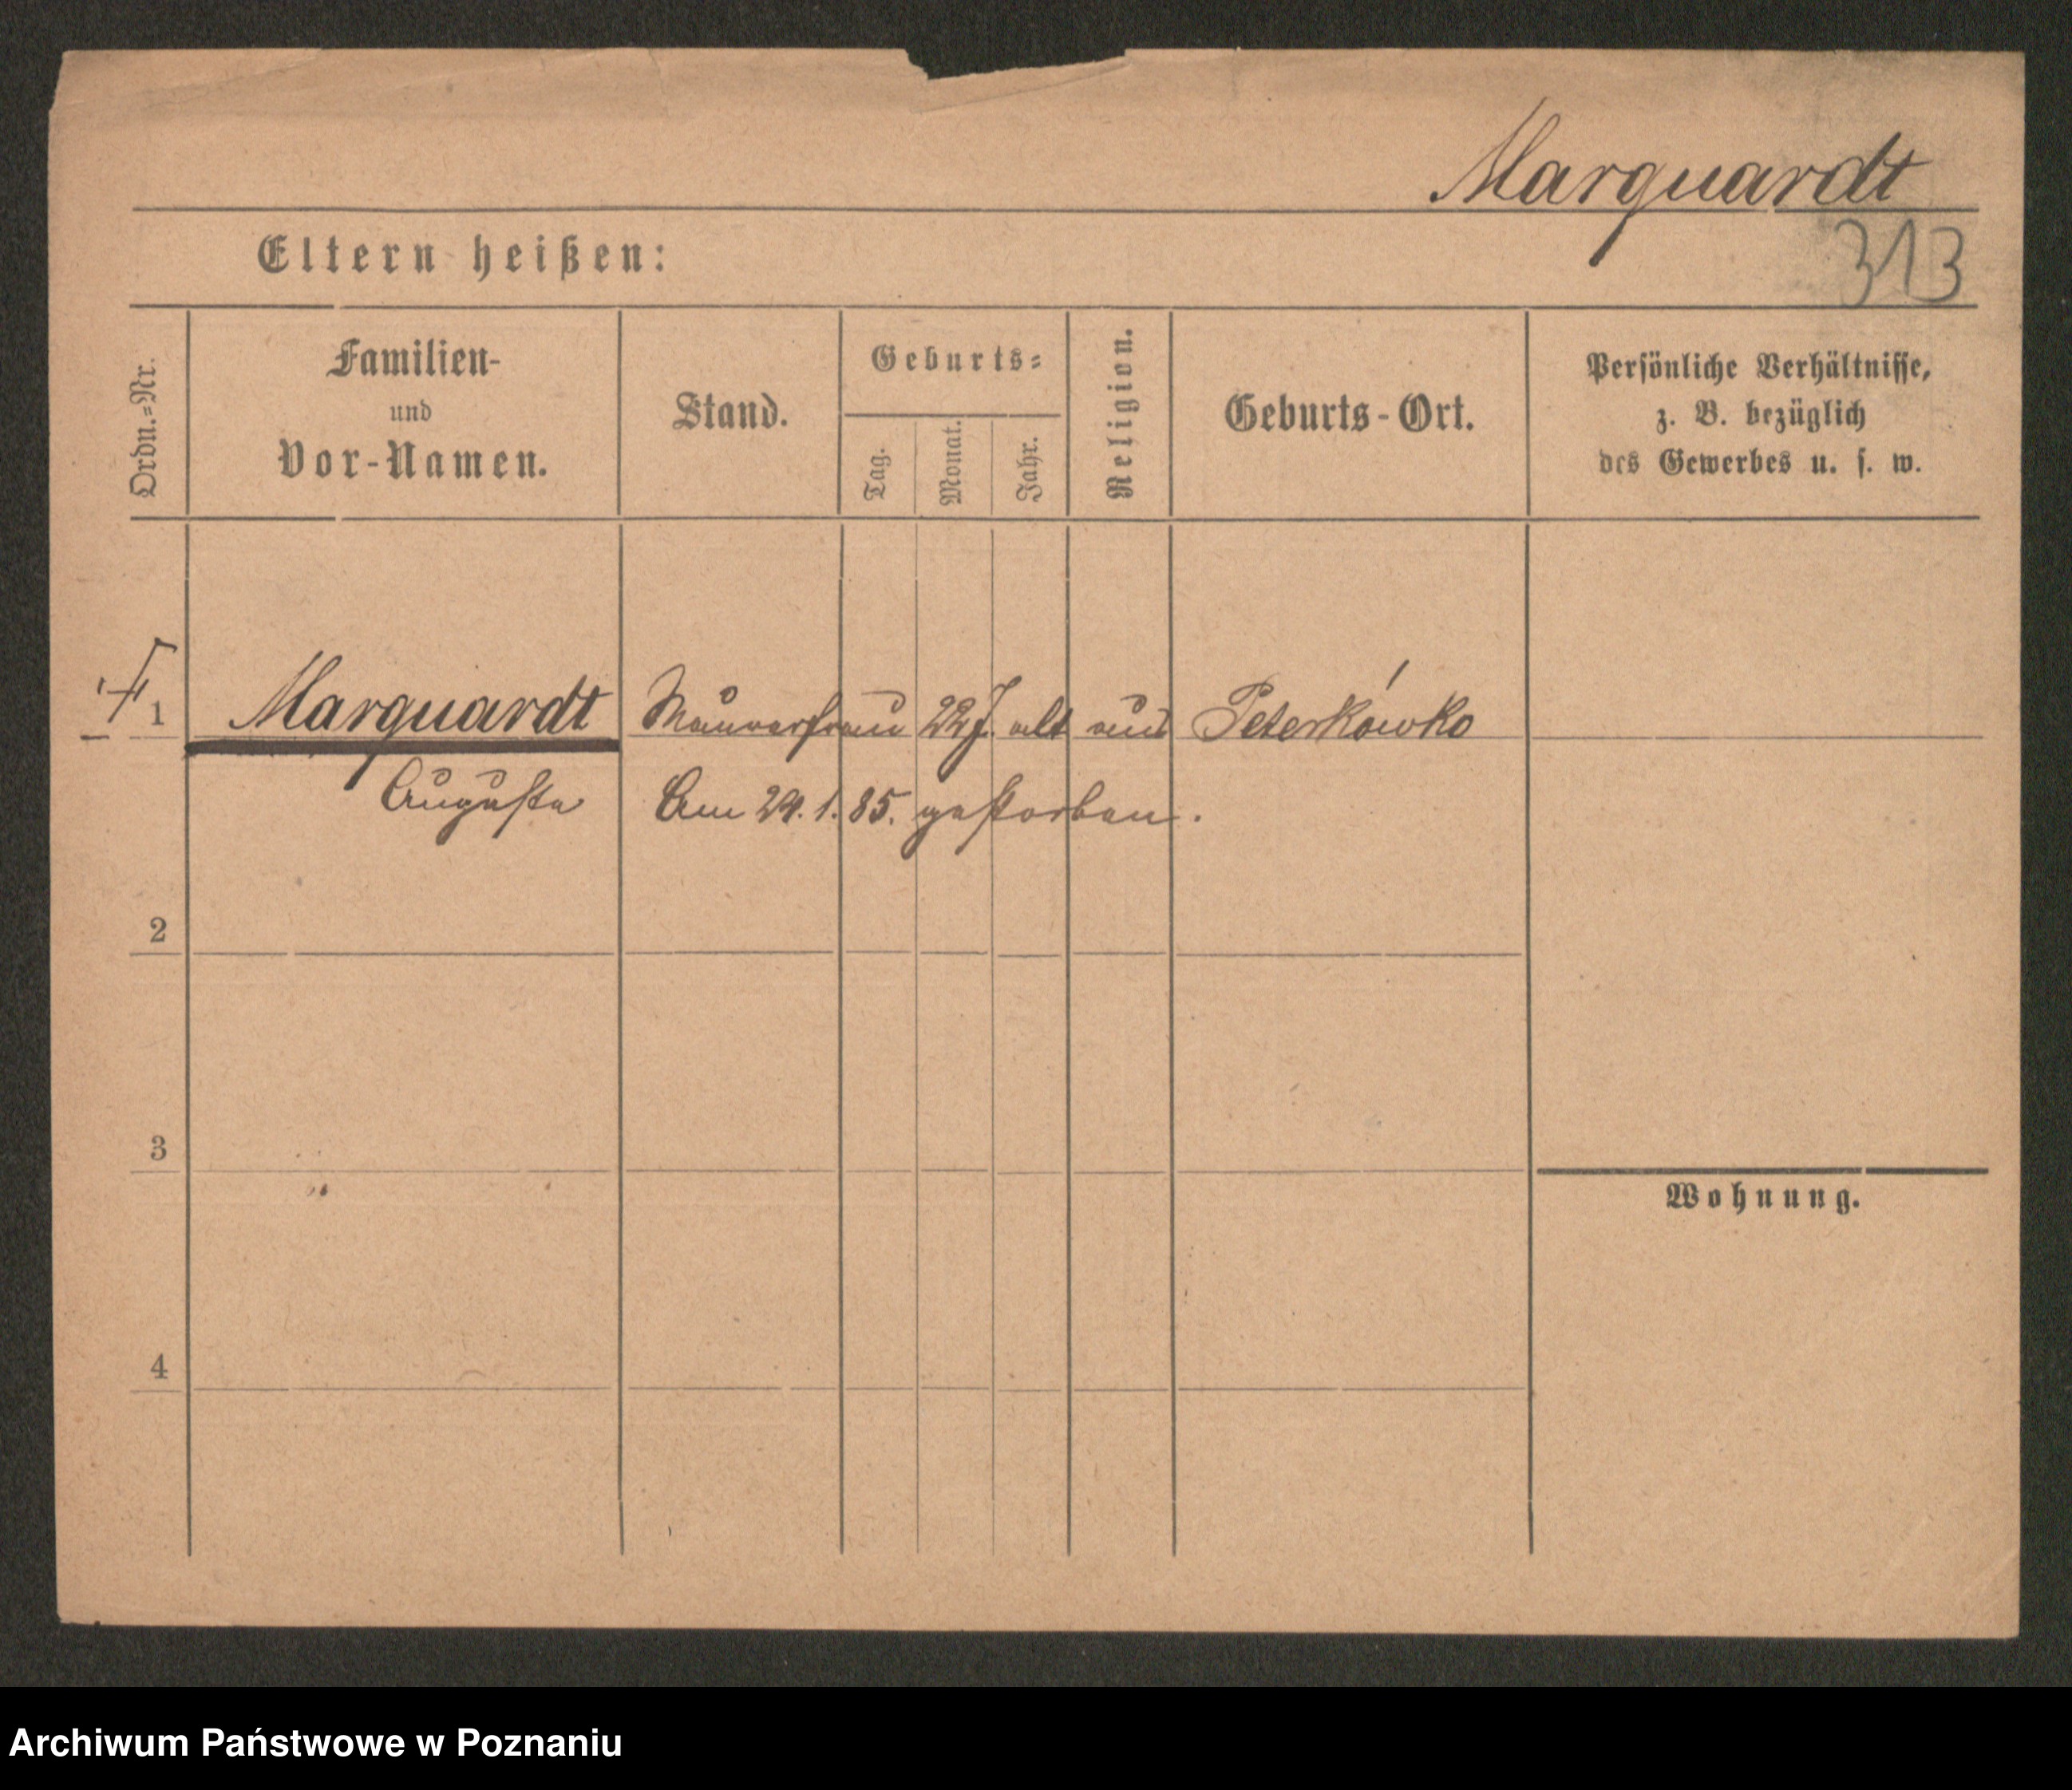 Marquardt
313
Eltern heißen:
Ordn.=Nr.
Familien-
und
Vor-Namen.
Stand.
Geburts=
Tag.
Monat.
Jahr.
Religion.
Geburts-Ort.
Persönliche Verhältnisse,
z. B. bezüglich
des Gewerbes u. s. w.
1 Marquardt Maurerfrau 22 J. alt aus Peterkówko
Auguste Am 24.1.85. gestorben.
2
3
Wohnung.
4
Archiwum Państwowe w Poznaniu